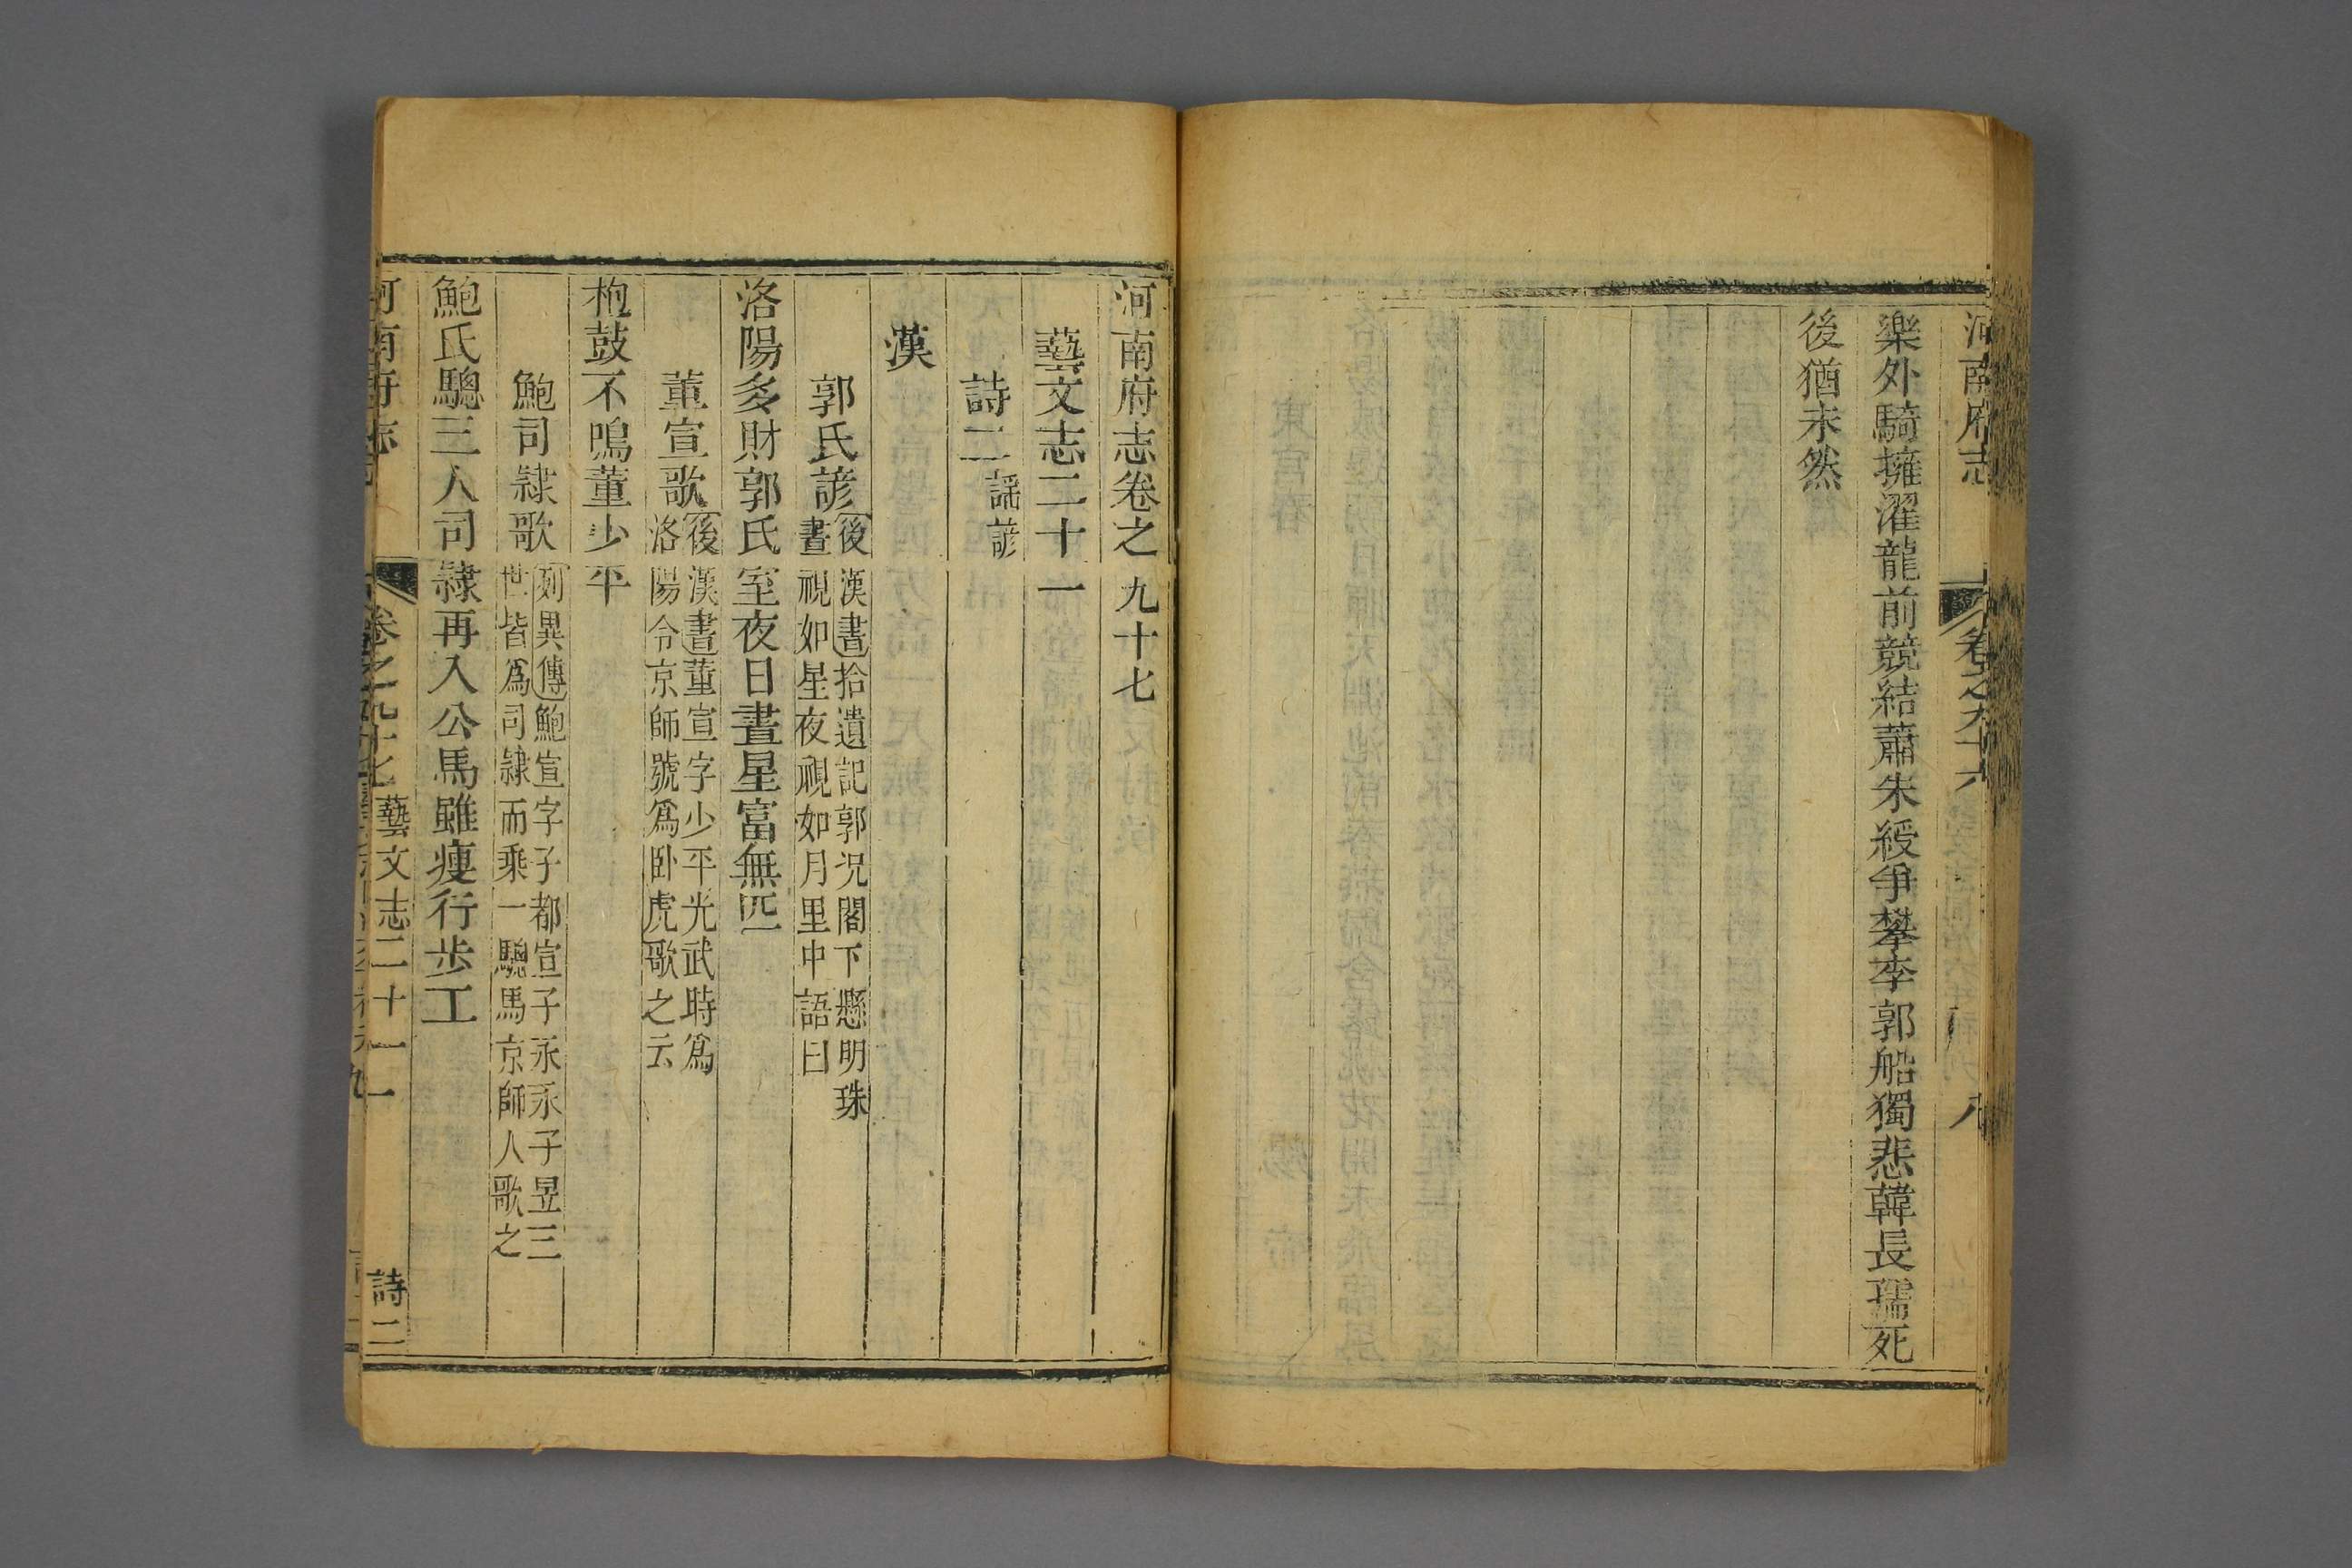 河南府志 卷之九十六 八
樂外騎擁濯龍前競結蕭朱綬爭攀李郭船獨悲韓長孺死
後猶未然
河南府志卷之九十七
藝文志二十一
詩二 謡諺
漢
郭氏諺 後漢書拾遺記郭况閣下懸明珠
晝視如星夜視如月里中語曰
洛陽多財郭氏室夜日晝星富無匹
董宣歌 後漢書董宣字少平光武時爲
洛陽令京師號爲卧虎歌之云
枹鼓不鳴董少平
鮑司隷歌 列異傳鮑宣字子都宣子永永子昱三
世皆爲司隷而乘一驄馬京師人歌之
鮑氏驄三人司隷再入公馬雖瘦行步工
河南府志 卷之九十七 藝文志二十一 一 詩二